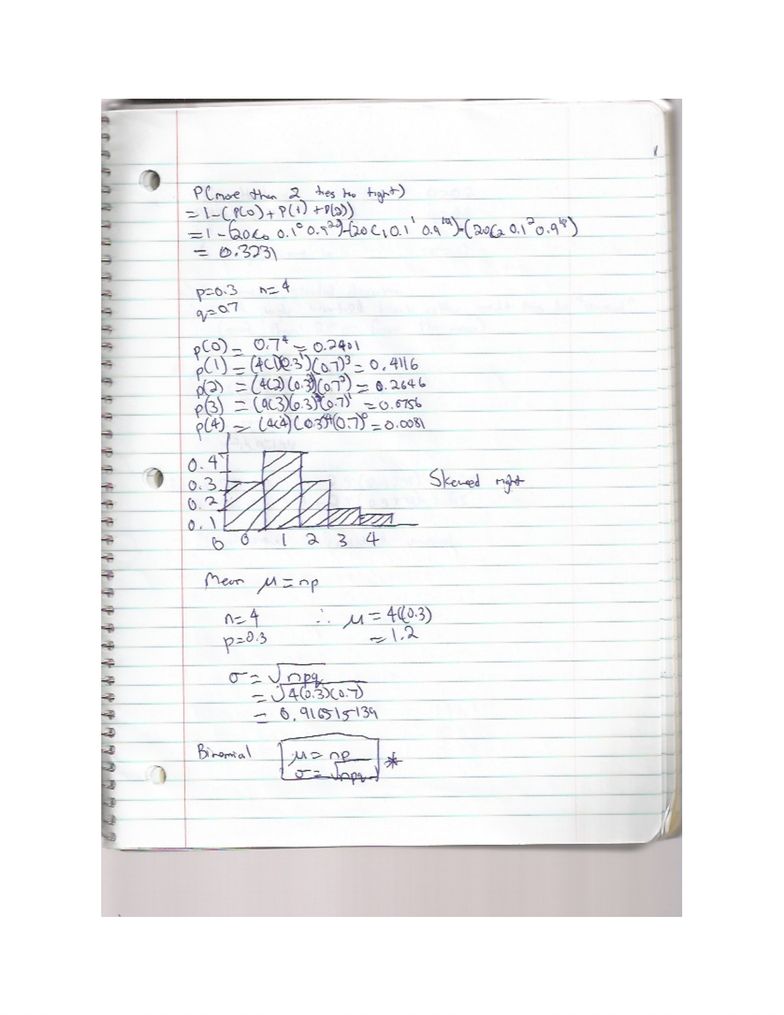 P(more than 2 ties too tight)
= 1 - (P(0) + P(1) + P(2))
= 1 - (20C0 0.1⁰ 0.9²⁰) - (20C1 0.1¹ 0.9¹⁹) - (20C2 0.1² 0.9¹⁸)
= 0.3231
p=0.3 n=4
q=0.7
p(0) = 0.7⁴ = 0.2401
p(1) = (4C1)(0.3¹)(0.7)³ = 0.4116
p(2) = (4C2)(0.3²)(0.7²) = 0.2646
p(3) = (4C3)(0.3)³(0.7)¹ = 0.0756
p(4) = (4C4)(0.3)⁴(0.7)⁰ = 0.0081
0.4
0.3 Skewed right
0.2
0.1
0 0 1 2 3 4
Mean μ = np
n=4 ∴ μ = 4(0.3)
p=0.3 = 1.2
σ = √npq
= √4(0.3)(0.7)
= 0.916515139
Binomial μ = np *
σ = √npq